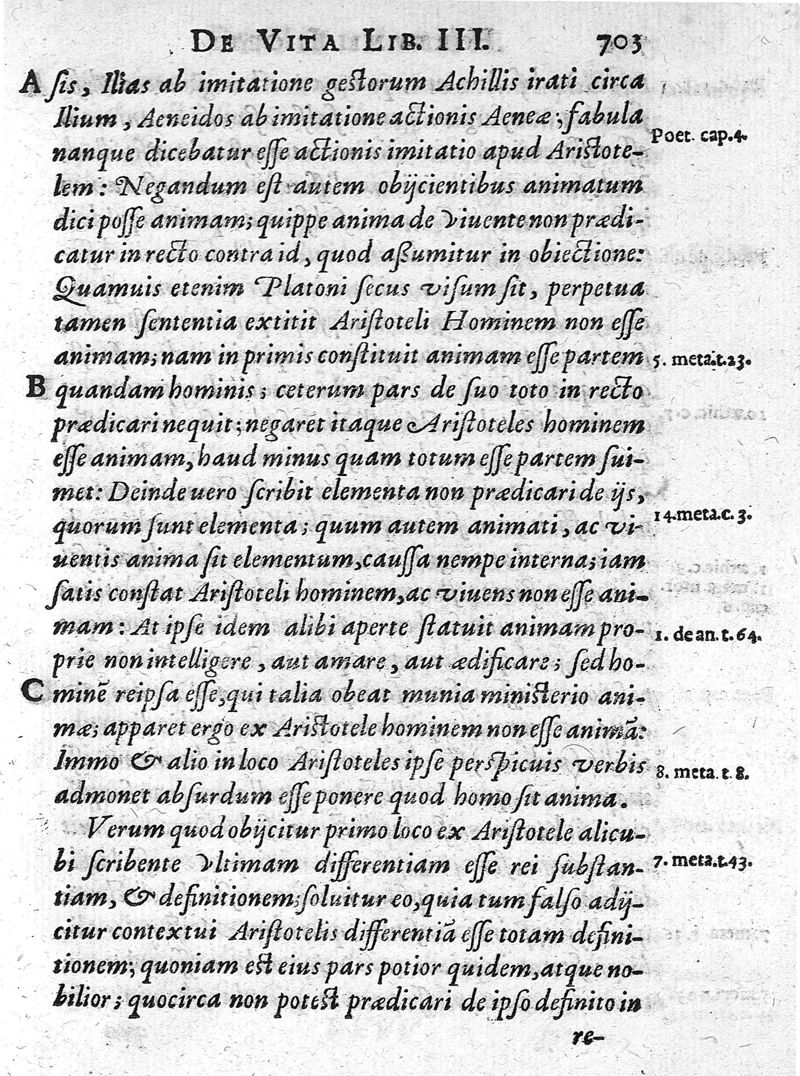 DE VITA LIB. III. 703
A sis, Ilias ab imitatione gestorum Achillis irati circa
Ilium, Aeneidos ab imitatione actionis Aeneæ; fabula
nanque dicebatur esse actionis imitatio apud Aristote-
Poet. cap. 4.
lem: Negandum est autem obijcientibus animatum
dici posse animam; quippe anima de viuente non prædi-
catur in recto contra id, quod aßumitur in obiectione:
Quamuis etenim Platoni secus visum sit, perpetua
tamen sententia extitit Aristoteli Hominem non esse
animam; nam in primis constituit animam esse partem
5. meta.t.23.
B quandam hominis; ceterum pars de suo toto in recto
prædicari nequit; negaret itaque Aristoteles hominem
esse animam, haud minus quam totum esse partem sui-
met: Deinde uero scribit elementa non prædicari de ijs,
quorum sunt elementa; quum autem animati, ac vi-
14.meta.c.3.
uentis anima sit elementum, caussa nempe interna; iam
satis constat Aristoteli hominem, ac viuens non esse ani-
mam: At ipse idem alibi aperte statuit animam pro-
1. de an.t.64.
prie non intelligere, aut amare, aut ædificare; sed ho-
C minē reipsa esse, qui talia obeat munia ministerio ani-
mæ; apparet ergo ex Aristotele hominem non esse animā:
Immo & alio in loco Aristoteles ipse perspicuis verbis
8. meta.t.8.
admonet absurdum esse ponere quod homo sit anima.
Verum quod obijcitur primo loco ex Aristotele alicu-
bi scribente vltimam differentiam esse rei substan-
7. meta.t.43.
tiam, & definitionem; soluitur eo, quia tum falso adij-
citur contextui Aristotelis differentiā esse totam defini-
tionem; quoniam est eius pars potior quidem, atque no-
bilior; quocirca non potest prædicari de ipso definito in
re-